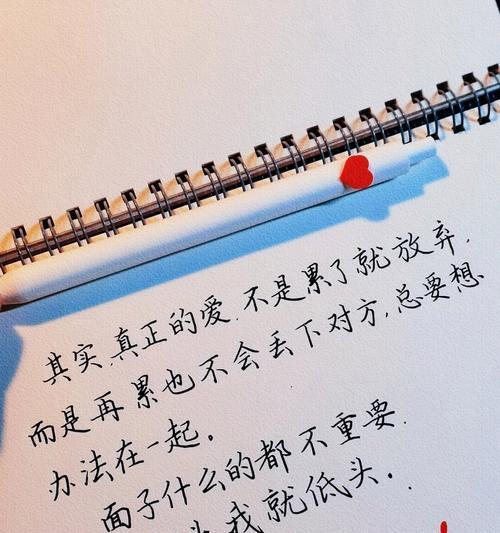 其实,真正的爱,不是累了就放弃,
而是再累也不会丢下对方,总要想
办法在一起。
面子什么的都不重要.
我就低头..